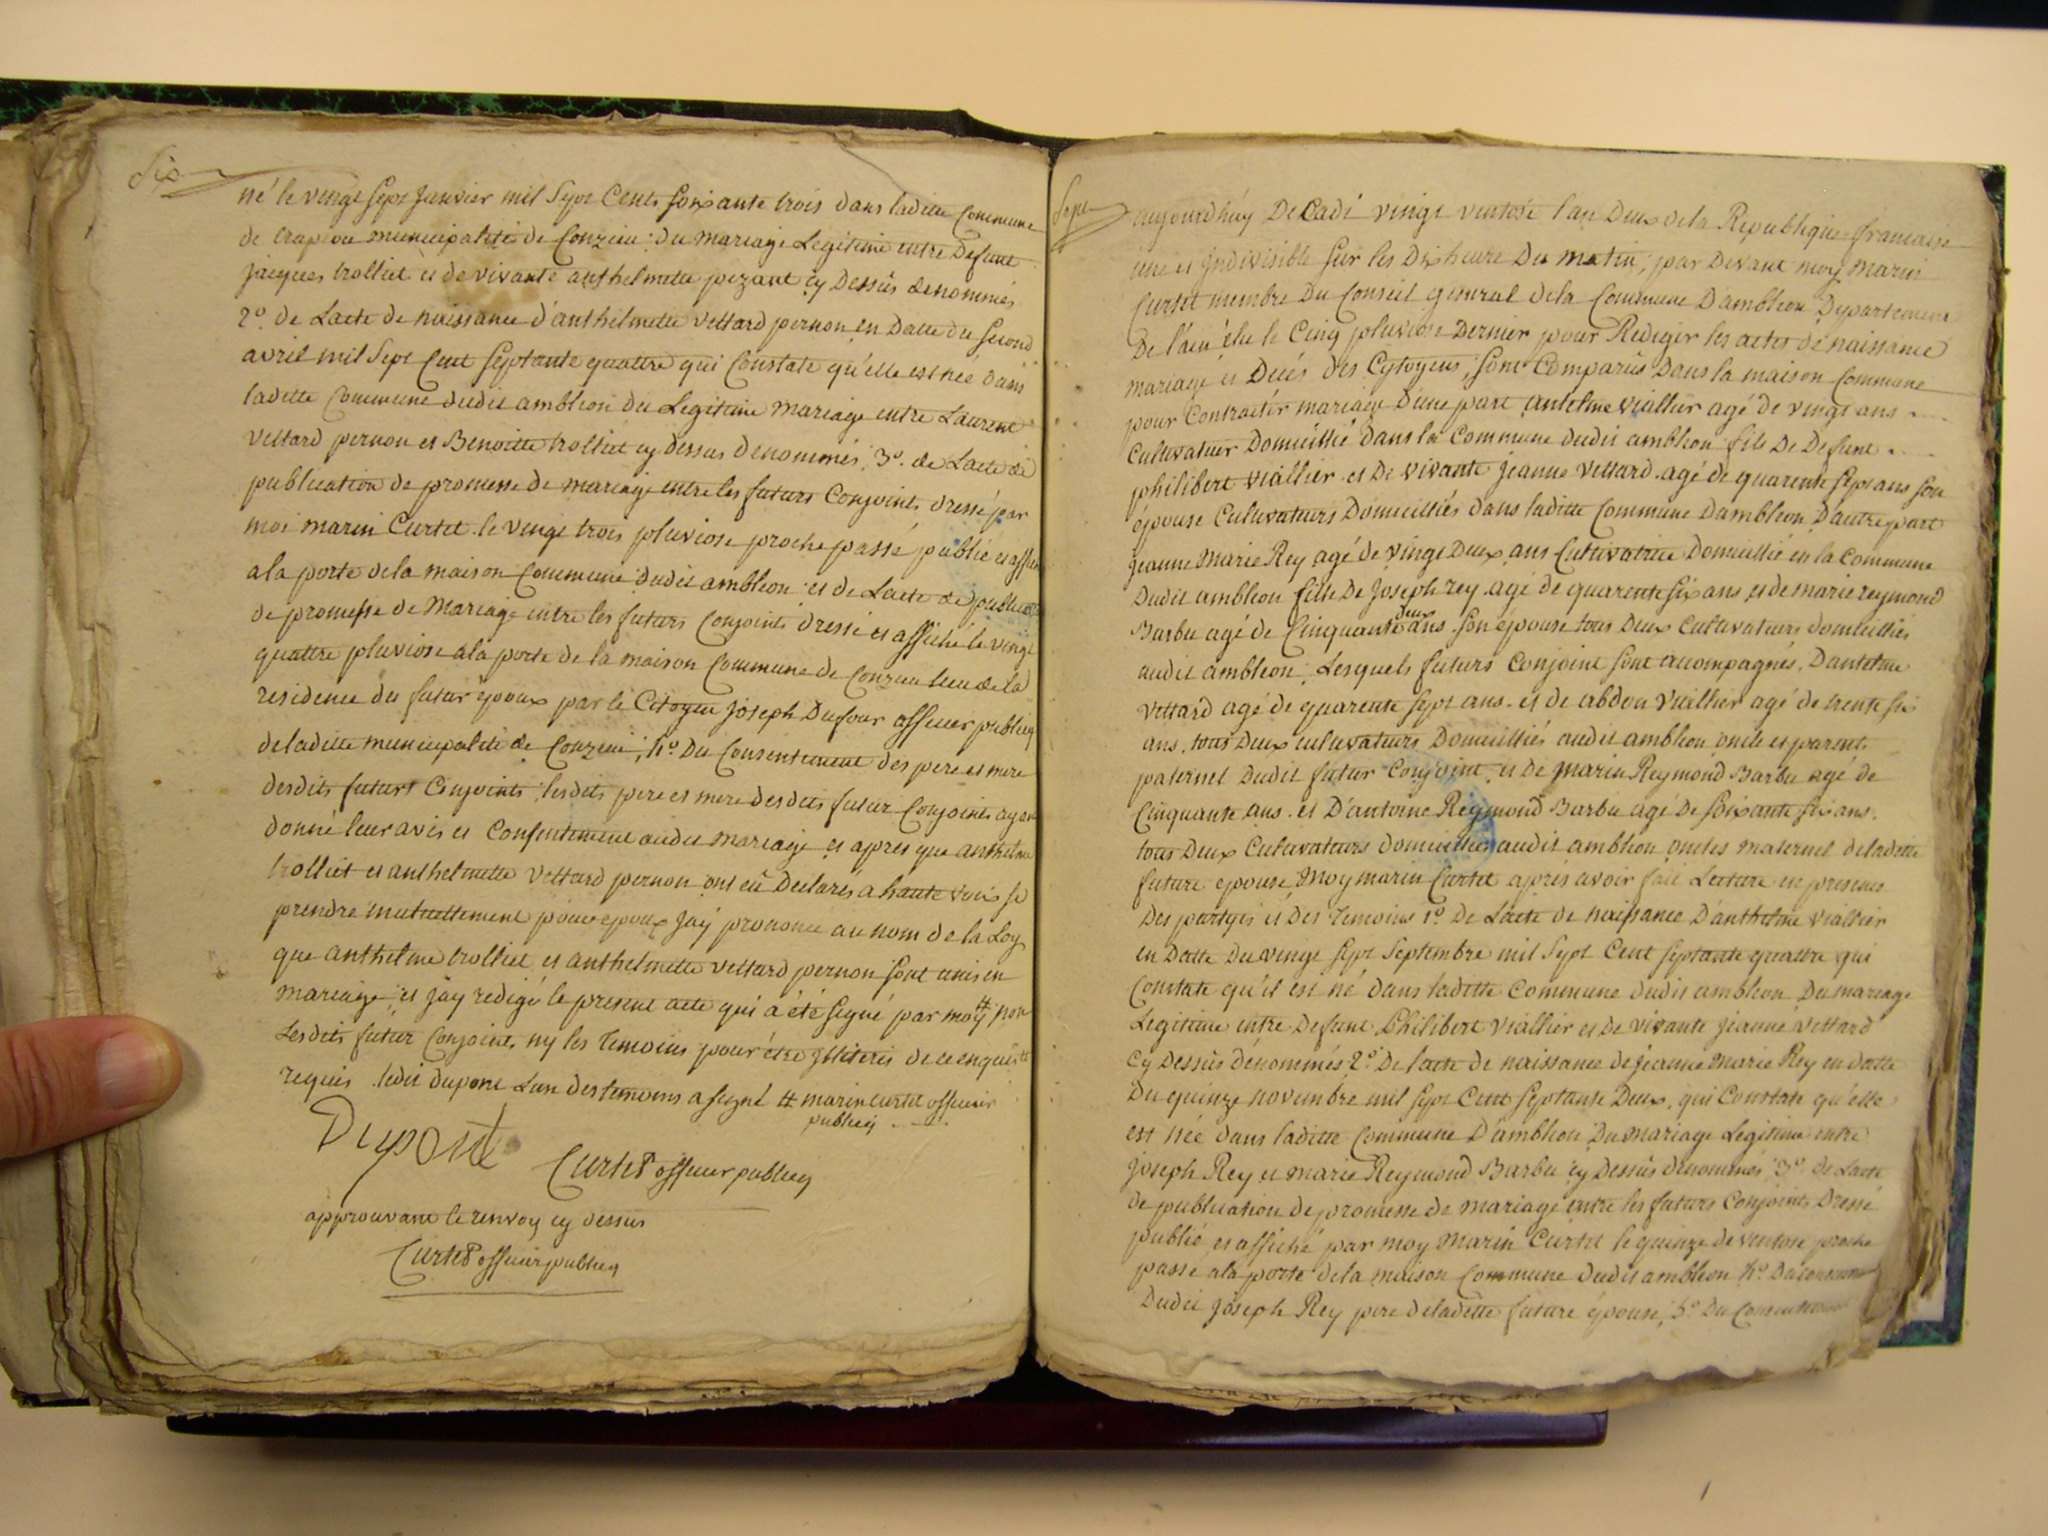 Six
né le vingt sept Janvier mil Sept Cent Soixante trois dans laditte Commune
de crapou municipalité de Conzieu : du mariage Legitime entre Defunt
jacques trolliet et de vivante anthelmette pezant cy Dessus denommés
2º. de Lacte de naissance d'anthelmette Vettard pernon en Datte du Second
avril mil Sept Cent Septante quattre qui Constate qu'elle est née dans
laditte Commune dudit ambleon du Legitime mariage entre Laurent
Vettard pernon et Benoitte trolliet cy dessus denommés, 3º. de Lacte de
publication de promesse de mariage entre les futurs Conjoints dressé par
moi marin Curtet le vingt trois pluviose proche passé publié et affiché
a la porte de la maison Commune dudit ambleon et de Lacte de publication
de promesse de Mariage entre les futurs Conjoints dressé et affiché le vingt
quattre pluviose a la porte de la maison Commune de Conzieu lieu de la
residence du futur epoux par le Citoyen joseph Dufour officier publicq
de laditte municipalité de Conzieu, 4º Du Consentement des pere et mere
desdits futurs Conjoints lesdits pere et mere desdits futur Conjoints ayant
donné leur avis et Consentement audit mariage et apres que anthelme
trolliet et anthelmette Vettard pernon ont eû Declarés a haute voix se
prendre mutuellement pour epoux jay prononcé au nom de la Loy
que anthelme trolliet et anthelmette vettard pernon Sont unis en
mariage, et jay redigé le present acte qui a été signé par moy # non
Lesdits futur Conjoints ny les temoins pour être Illiteris de ce enquis
requis ledit dupont Lun des temoins a signé # marin curtet officier
publicq
Dupont
Curtet officier publicq
approuvant le renvoy cy dessus
Curtet officier publicq
Sept
aujourdhuy Decadi vingt ventose l'an Deux de la Republique francaise
une et Indivisible Sur les Dix heure Du matin, par Devant moy marin
Curtet membre Du Conseil general de la Commune D'ambleon Departement
De l'ain élu le Cinq pluviose Dernier pour Rediger les actes de naissance
mariage et Decés des Cytoyens, Sont Comparus Dans la maison Commune
pour Contracter mariage D'une part antelme viallier agé de vingt ans
Cultivateur Domicillié dans la Commune dudit ambleon fils De Defunt
philibert viallier et De vivante jeanne Vettard agé de quarente Sept ans Son
épouse Cultivateurs Domicilliés dans laditte Commune Dambleon D'autre part
jeanne Marie Rey agé de vingt Deux ans Cultivatrice Domicillié en la Commune
Dudit ambleon fille De joseph rey agé de quarente Six ans et de marie reymond
Barbu agé de Cinquante deux ans Son épouse tous Deux Cultivateurs domicilliés
audit ambleon, Lesquels futurs Conjoint Sont accompagnés Dantelme
Vettard agé de quarente Sept ans et de abdon Viallier agé de trente Six
ans, tous Deux cultivateurs Domicilliés audit ambleon oncle et parent
paternel Dudit futur Conjoint, et De marin Reymond Barbu agé de
Cinquante ans et D'antoine Reymond Barbu agé De Soixante Six ans
tous Deux Cultivateurs domicilliés audit ambleon oncles maternel de laditte
future epouse, Moy marin Curtet après avoir fait Lecture en presence
Des partyes et Des temoins 1º. De Lacte de naissance D'anthelme viallier
en Datte Du vingt Sept Septembre mil Sept Cent Septante quattre qui
Constate qu'il est né dans laditte Commune dudit ambleon Du mariage
Legitime entre Defunt Philibert Viallier et De vivante jeanne Vettard
Cy Dessus dénommés 2º. De lacte de naissance de jeanne Marie Rey en datte
Du quinze novembre mil Sept Cent Septante Deux, qui Constate qu'elle
est née dans laditte Commune D'ambleon Du mariage Legitime entre
joseph Rey et marie Reymond Barbu cy Dessus denommés 3º. de Lacte
de publication de promesse de mariage entre les futurs Conjoints Dressé
publié et affiché par moy Marin Curtet le quinze de ventose proche
passé a la porte de la maison Commune dudit ambleon 4º.
Dudit joseph Rey pere de laditte future épouse, 5º Du Consentement